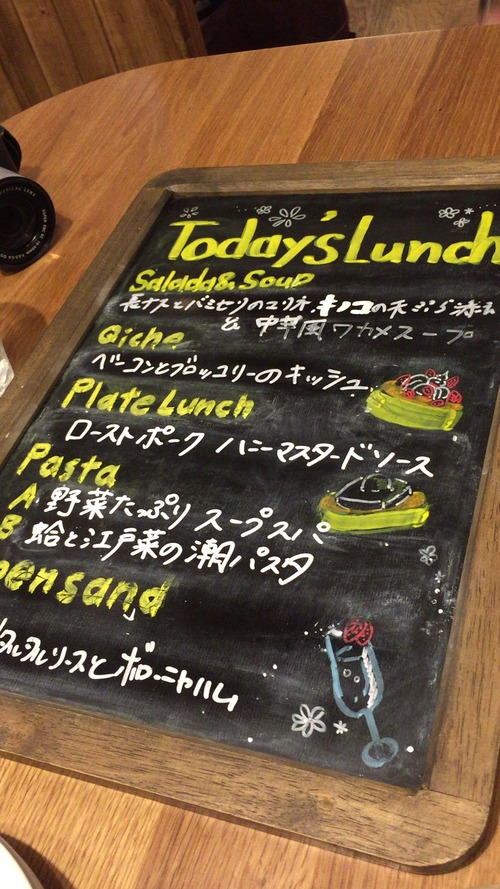 Today's Lunch
Salada & Soup
長ナスとパミセリのマリオ キノコの天ぷら添え
& 中華風ワカメスープ
Qiche
ベーコンとブロッコリーのキッシュ
Plate Lunch
ローストポーク ハニーマスタードソース
Pasta
A. 野菜たっぷり スープスパ
B 蛤と江戸菜の潮パスタ
pensand
タルタルソースとボローニャハム